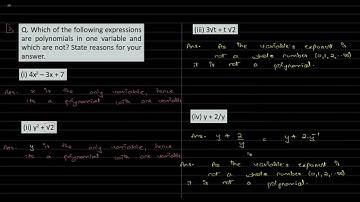 Q. Which of the following expressions
are polynomials in one variable and
which are not? State reasons for your
answer.
(i) 4x² – 3x + 7
Ans. x is the only variable, hence
its a polynomial with one variable
(ii) y² + √2
Ans. y is the only variable, hence
its a polynomial with one variable
(iii) 3√t + t √2
Ans. As the variable's exponent is
not a whole number (0,1,2,...∞)
it is not a polynomial.
(iv) y + 2/y
Ans. y + 2/y = y + 2·y⁻¹
Ans. As the variable's exponent is
not a whole number (0,1,2,...∞)
it is not a polynomial.